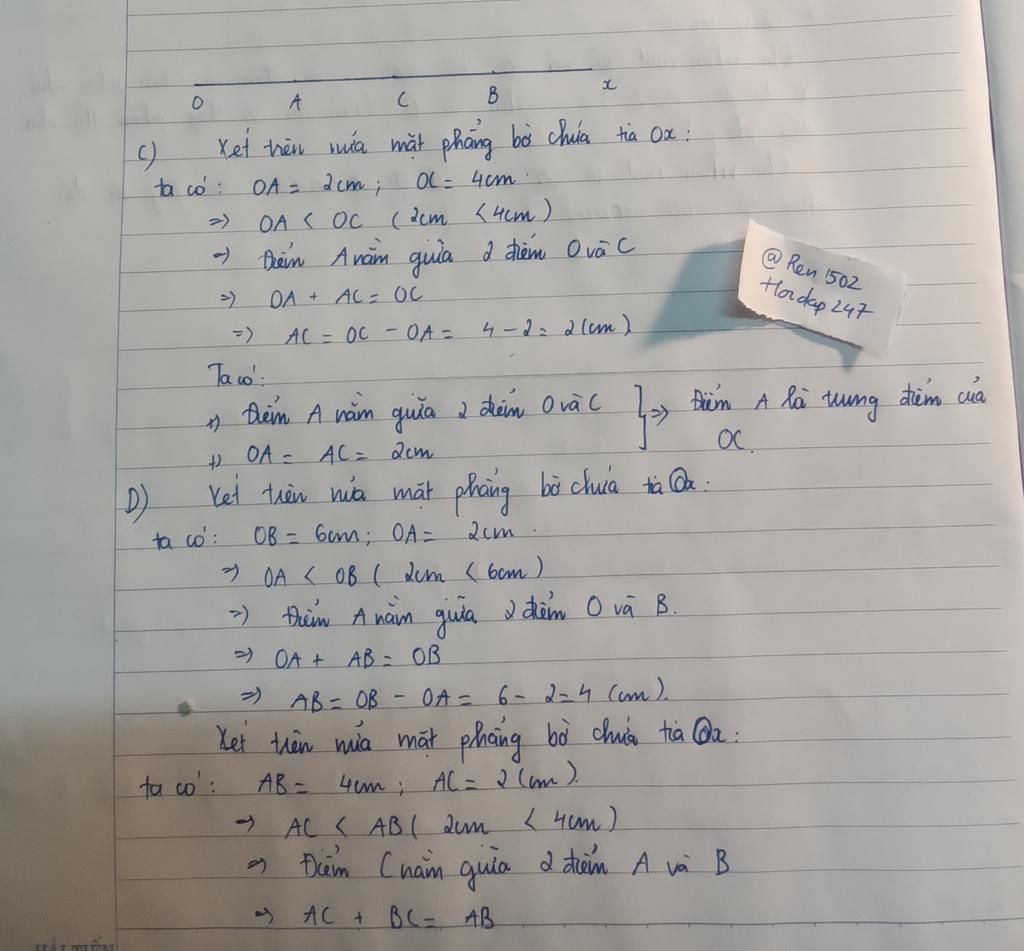 O A C B x
C) Xét trên nửa mặt phẳng bờ chứa tia Ox:
ta có: OA = 2cm; OC = 4cm.
=> OA < OC (2cm < 4cm)
=> Điểm A nằm giữa 2 điểm O và C
=> OA + AC = OC
=> AC = OC - OA = 4 - 2 = 2 (cm)
@Ren1502
Hoidap247
Ta có:
+) Điểm A nằm giữa 2 điểm O và C ] => Điểm A là trung điểm của
+) OA = AC = 2cm
OC.
D) Xét trên nửa mặt phẳng bờ chứa tia Ox:
ta có: OB = 6cm; OA = 2cm.
=> OA < OB (2cm < 6cm)
=> Điểm A nằm giữa 2 điểm O và B.
=> OA + AB = OB
=> AB = OB - OA = 6 - 2 = 4 (cm).
Xét trên nửa mặt phẳng bờ chứa tia Ox:
ta có: AB = 4cm; AC = 2 (cm).
=> AC < AB (2cm < 4cm)
=> Điểm C nằm giữa 2 điểm A và B
=> AC + BC = AB
HẢI TIẾN